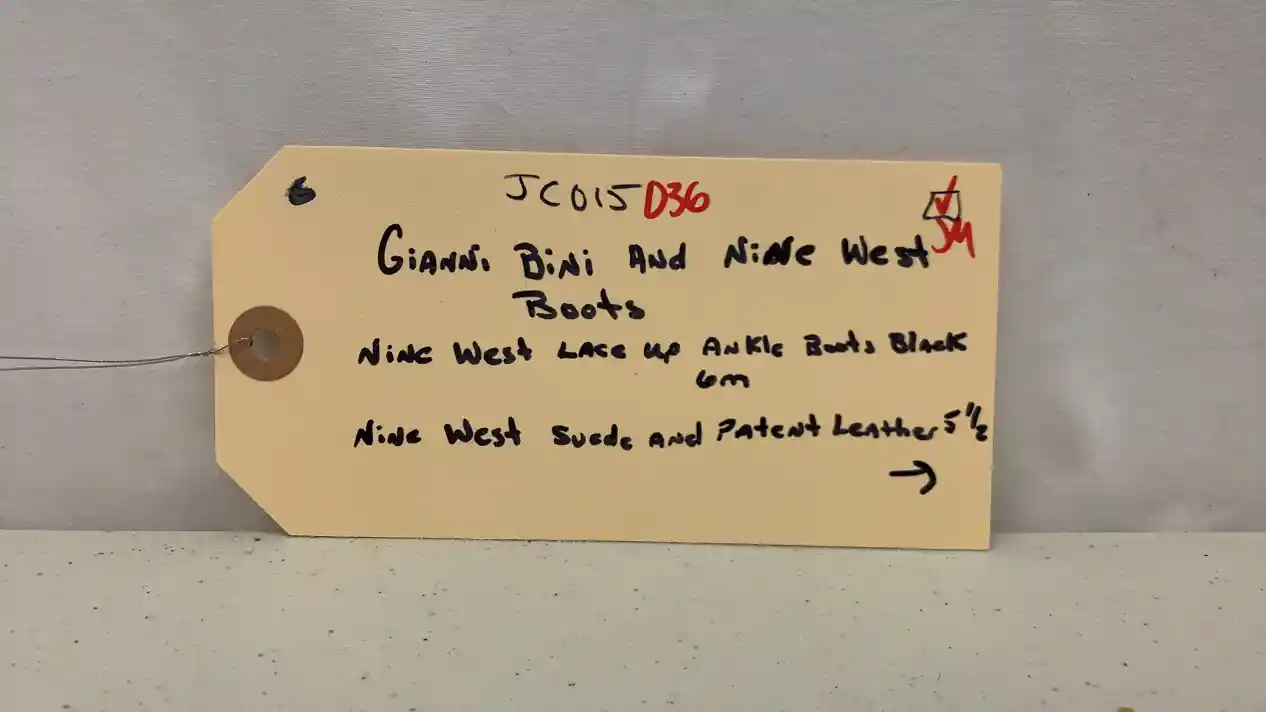 JC015 D36
Gianni Bini And Nine West
JM
Boots
Nine West Lace up Ankle Boots Black
6m
Nine West Suede And Patent Leather 5 1/2
→